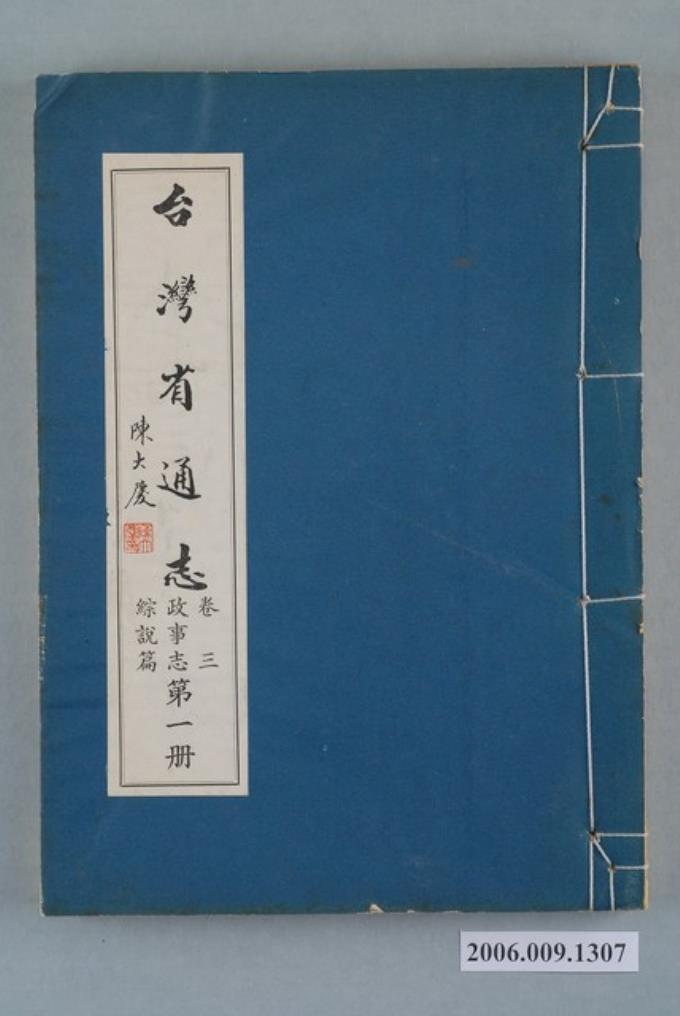 台灣省通志
卷三
政事志第一册
綜說篇
陳大慶
2006.009.1307